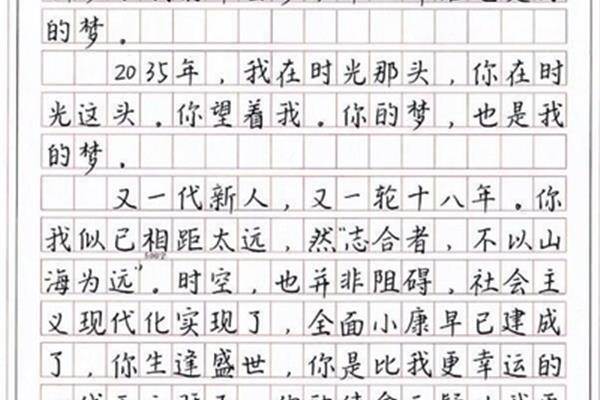 的梦.
2035年,我在时光那头,你在时
光这头.你望着我.你的梦,也是我
的梦.
又一代新人,又一轮十八年.你
我似已相距太远,然"志合者,不以山
海为远".时空,也并非阻碍,社会主
义现代化实现了,全面小康早已建成
了,你生逢盛世,你是比我更幸运的